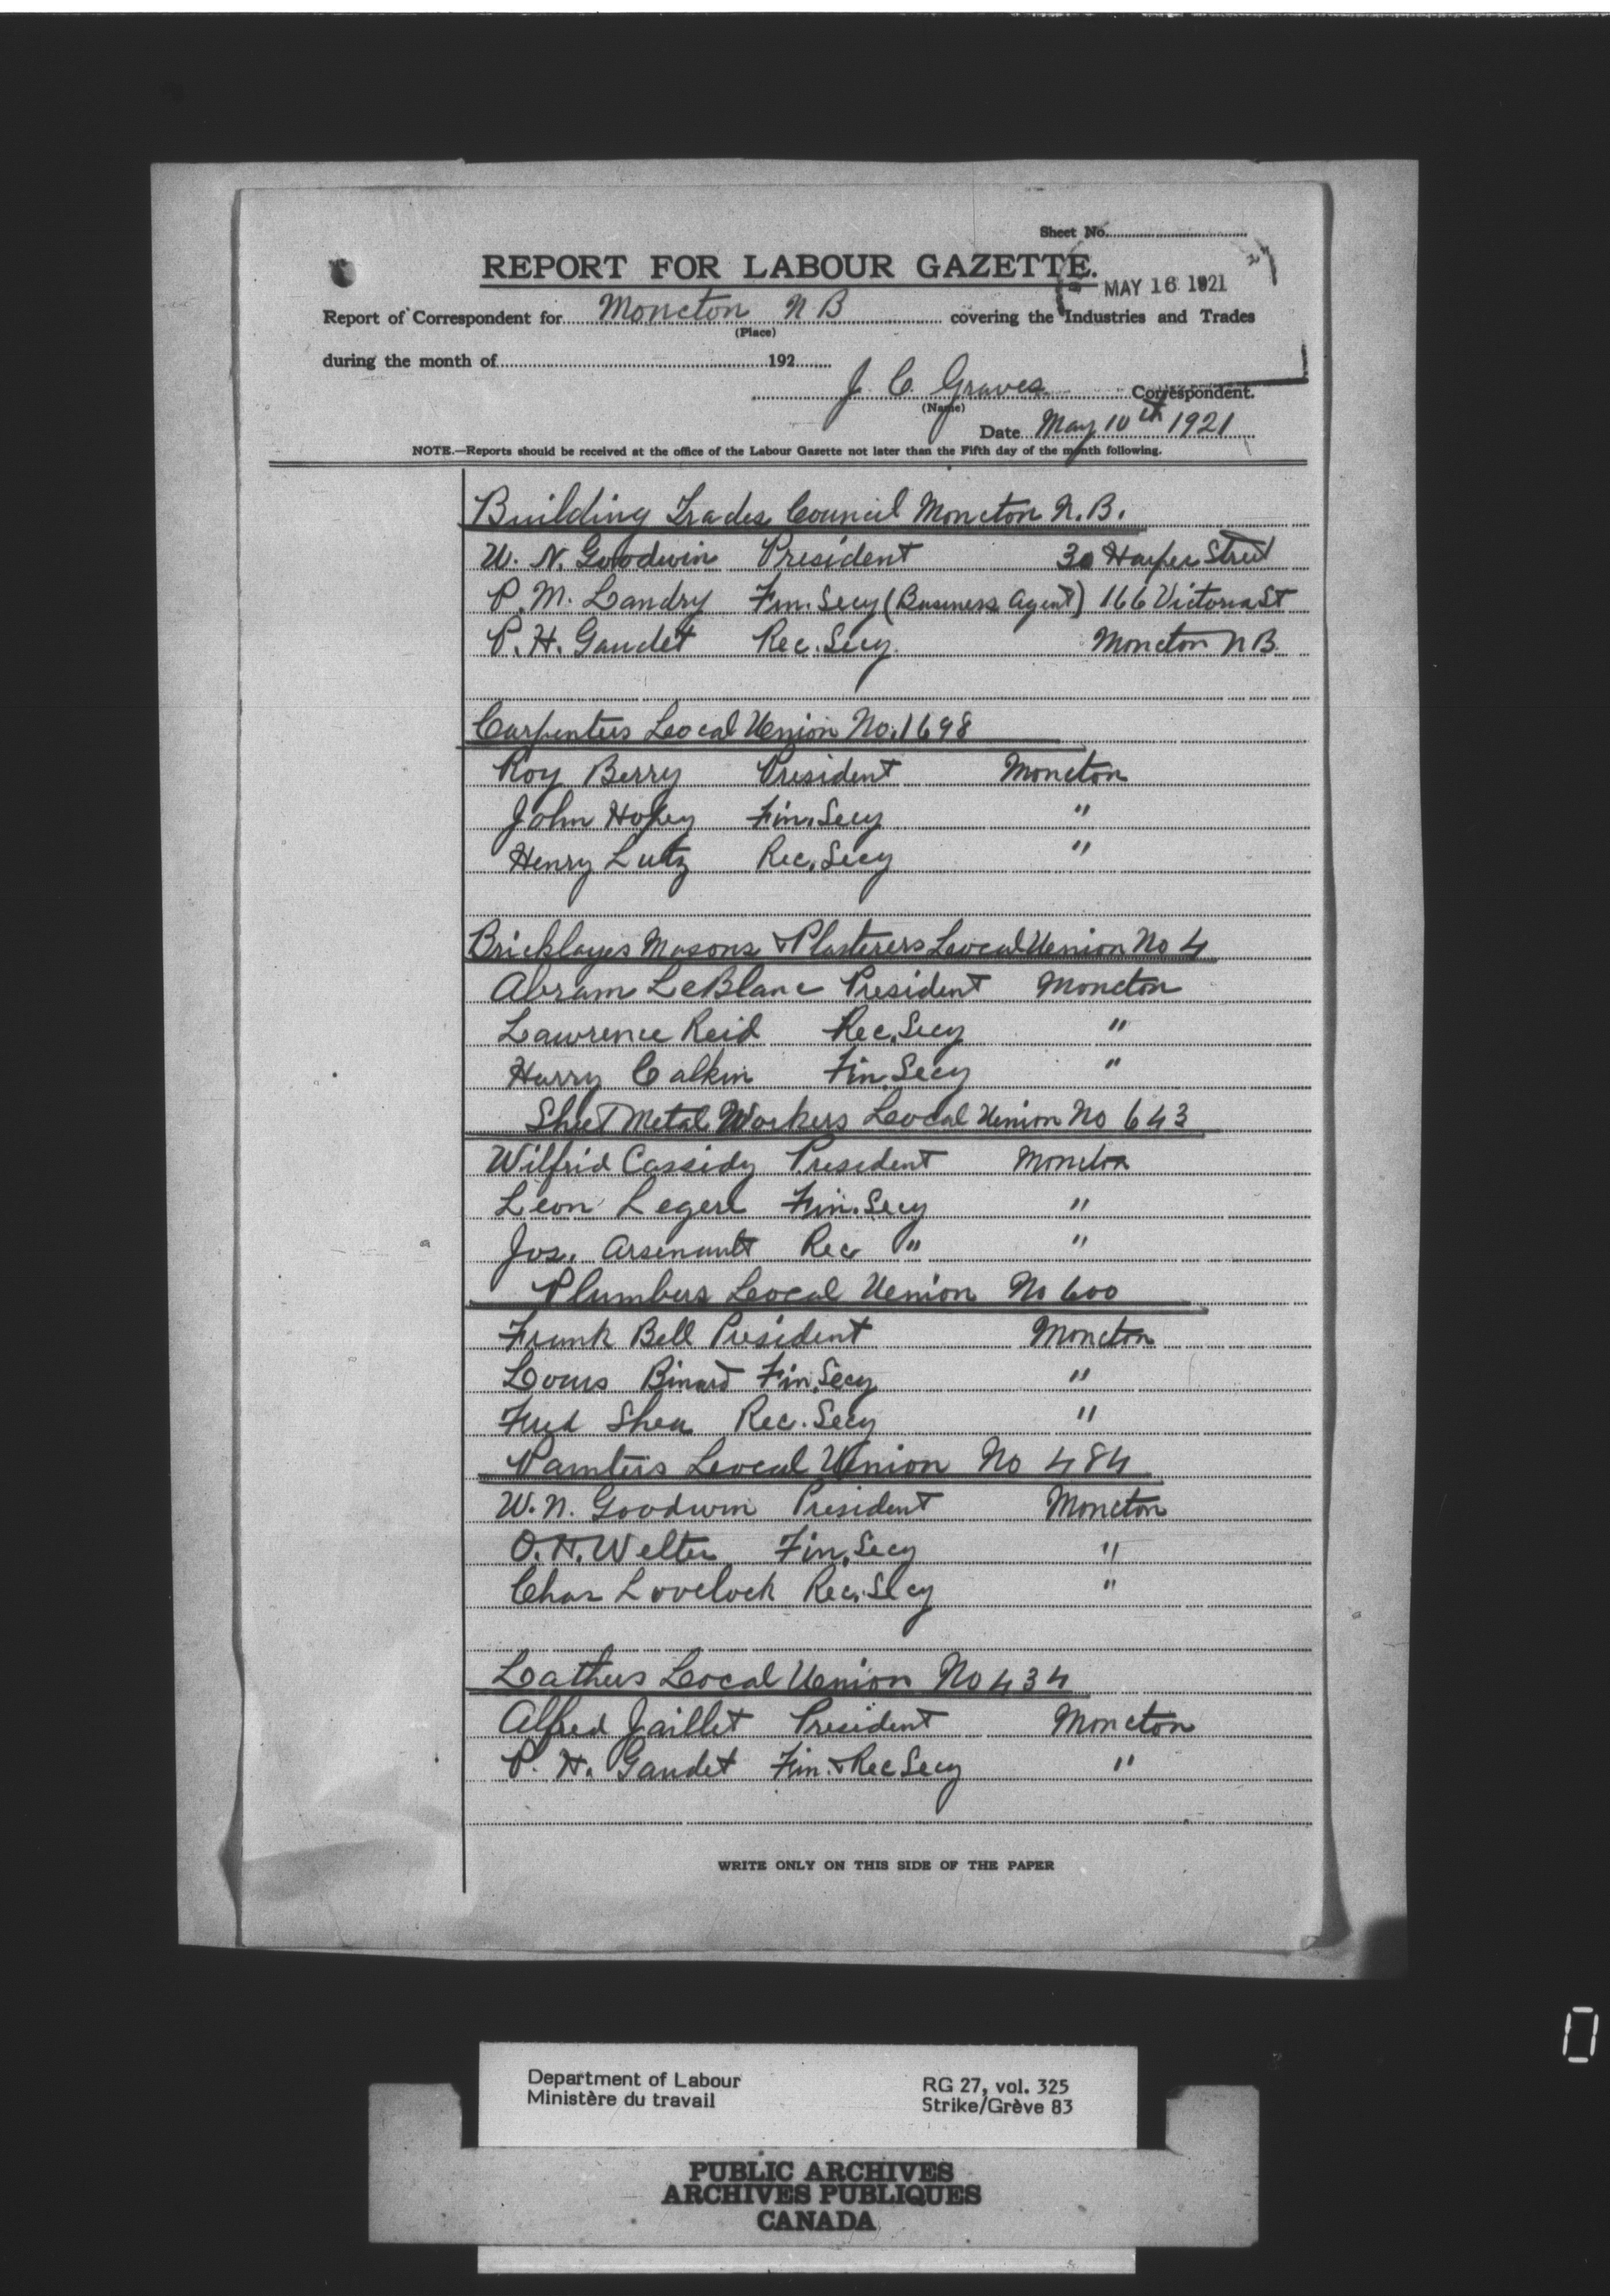 Sheet No.
REPORT FOR LABOUR GAZETTE.
MAY 16 1921
Report of Correspondent for Moncton N B covering the Industries and Trades
(Place)
during the month of 192
J. C. Graves Correspondent.
(Name)
Date May 10th 1921
NOTE.—Reports should be received at the office of the Labour Gazette not later than the Fifth day of the month following.
Building Trades Council Moncton N.B.
W. N. Goodwin President 30 Harper Street
P. M. Landry Fin. Secy (Business Agent) 166 Victoria St
P. H. Gaudet Rec. Secy. Moncton N B.
Carpenters Local Union No. 1698
Roy Berry President Moncton
John Fin. Secy "
Henry Lutz Rec. Secy "
Bricklayes Masons & Plasterers Local Union No 4
Abram LeBlanc President Moncton
Lawrence Reid Rec. Secy "
Harry Calkin Fin. Secy "
Sheet Metal Workers Local Union No 643
Wilfrid Cassidy President Moncton
Leon Legere Fin. Secy "
Jos. Arsenault Rec " "
Plumbers Local Union No 600
Frank Bell President Moncton
Louis Fin. Secy "
Fred Shea Rec. Secy "
Painters Local Union No 484
W. N. Goodwin President Moncton
O. H. Welter Fin. Secy "
Chas Lovelock Rec. Secy "
Lathers Local Union No 434
Alfred Jaillet President Moncton
P. H. Gaudet Fin. & Rec Secy "
WRITE ONLY ON THIS SIDE OF THE PAPER
Department of Labour
Ministère du travail
RG 27, vol. 325
Strike/Grève 83
PUBLIC ARCHIVES
ARCHIVES PUBLIQUES
CANADA